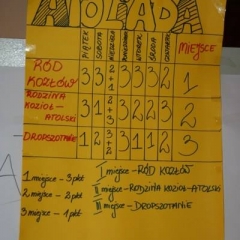 HOLADA
PIĄTEK SOBOTA NIEDZIELA PONIEDZIAŁEK WTOREK ŚRODA CZWARTEK MIEJSCE
RÓD KOZŁÓW 3 3 3 3 3 1
RODZINA KOZIOŁ-ATOLSKI 3 1 3 2 3 3 2
-DROPSZOTANIE- 1 2 3 1 2 3
1 miejsce - 3 pkt
2 miejsce - 2 pkt
3 miejsce - 1 pkt
I miejsce - RÓD KOZŁÓW
II miejsce - RODZINA KOZIOŁ-ATOLSKI
III miejsce - DROPSZOTANIE